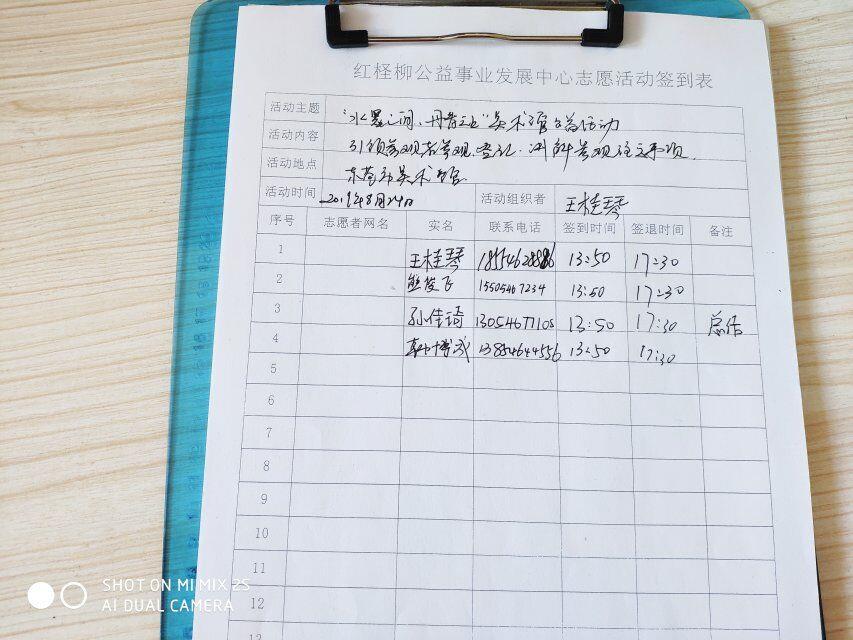 红柽柳公益事业发展中心志愿活动签到表
活动主题 "水墨之间、丹青之上"美术馆公益活动
活动内容 引领参观者参观、登记、讲解参观注意事项
活动地点 东营市美术馆
活动时间 2019年8月24日 活动组织者 王桂琴
序号 志愿者网名 实名 联系电话 签到时间 签退时间 备注
1 王桂琴 13:50 17:30
2 15505467234 13:50 17:30
3 孙佳琦 13054677105 13:50 17:30 总结
4 13854644556 13:50 17:30
5
6
7
8
9
10
11
12
13
SHOT ON MI MIX 2S
AI DUAL CAMERA